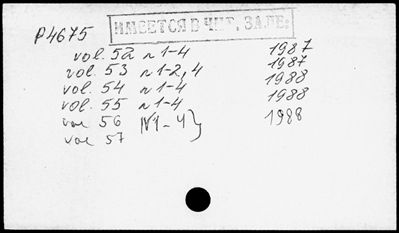 P4675
ИМЕЕТСЯ В ЧИТ. ЗАЛЕ.
vol. 52 n 1-4 1987
vol. 53 n 1-2, 4 1987
vol. 54 n 1-4 1988
vol. 55 n 1-4 1988
vol 56 N1-4} 1988
vol 57